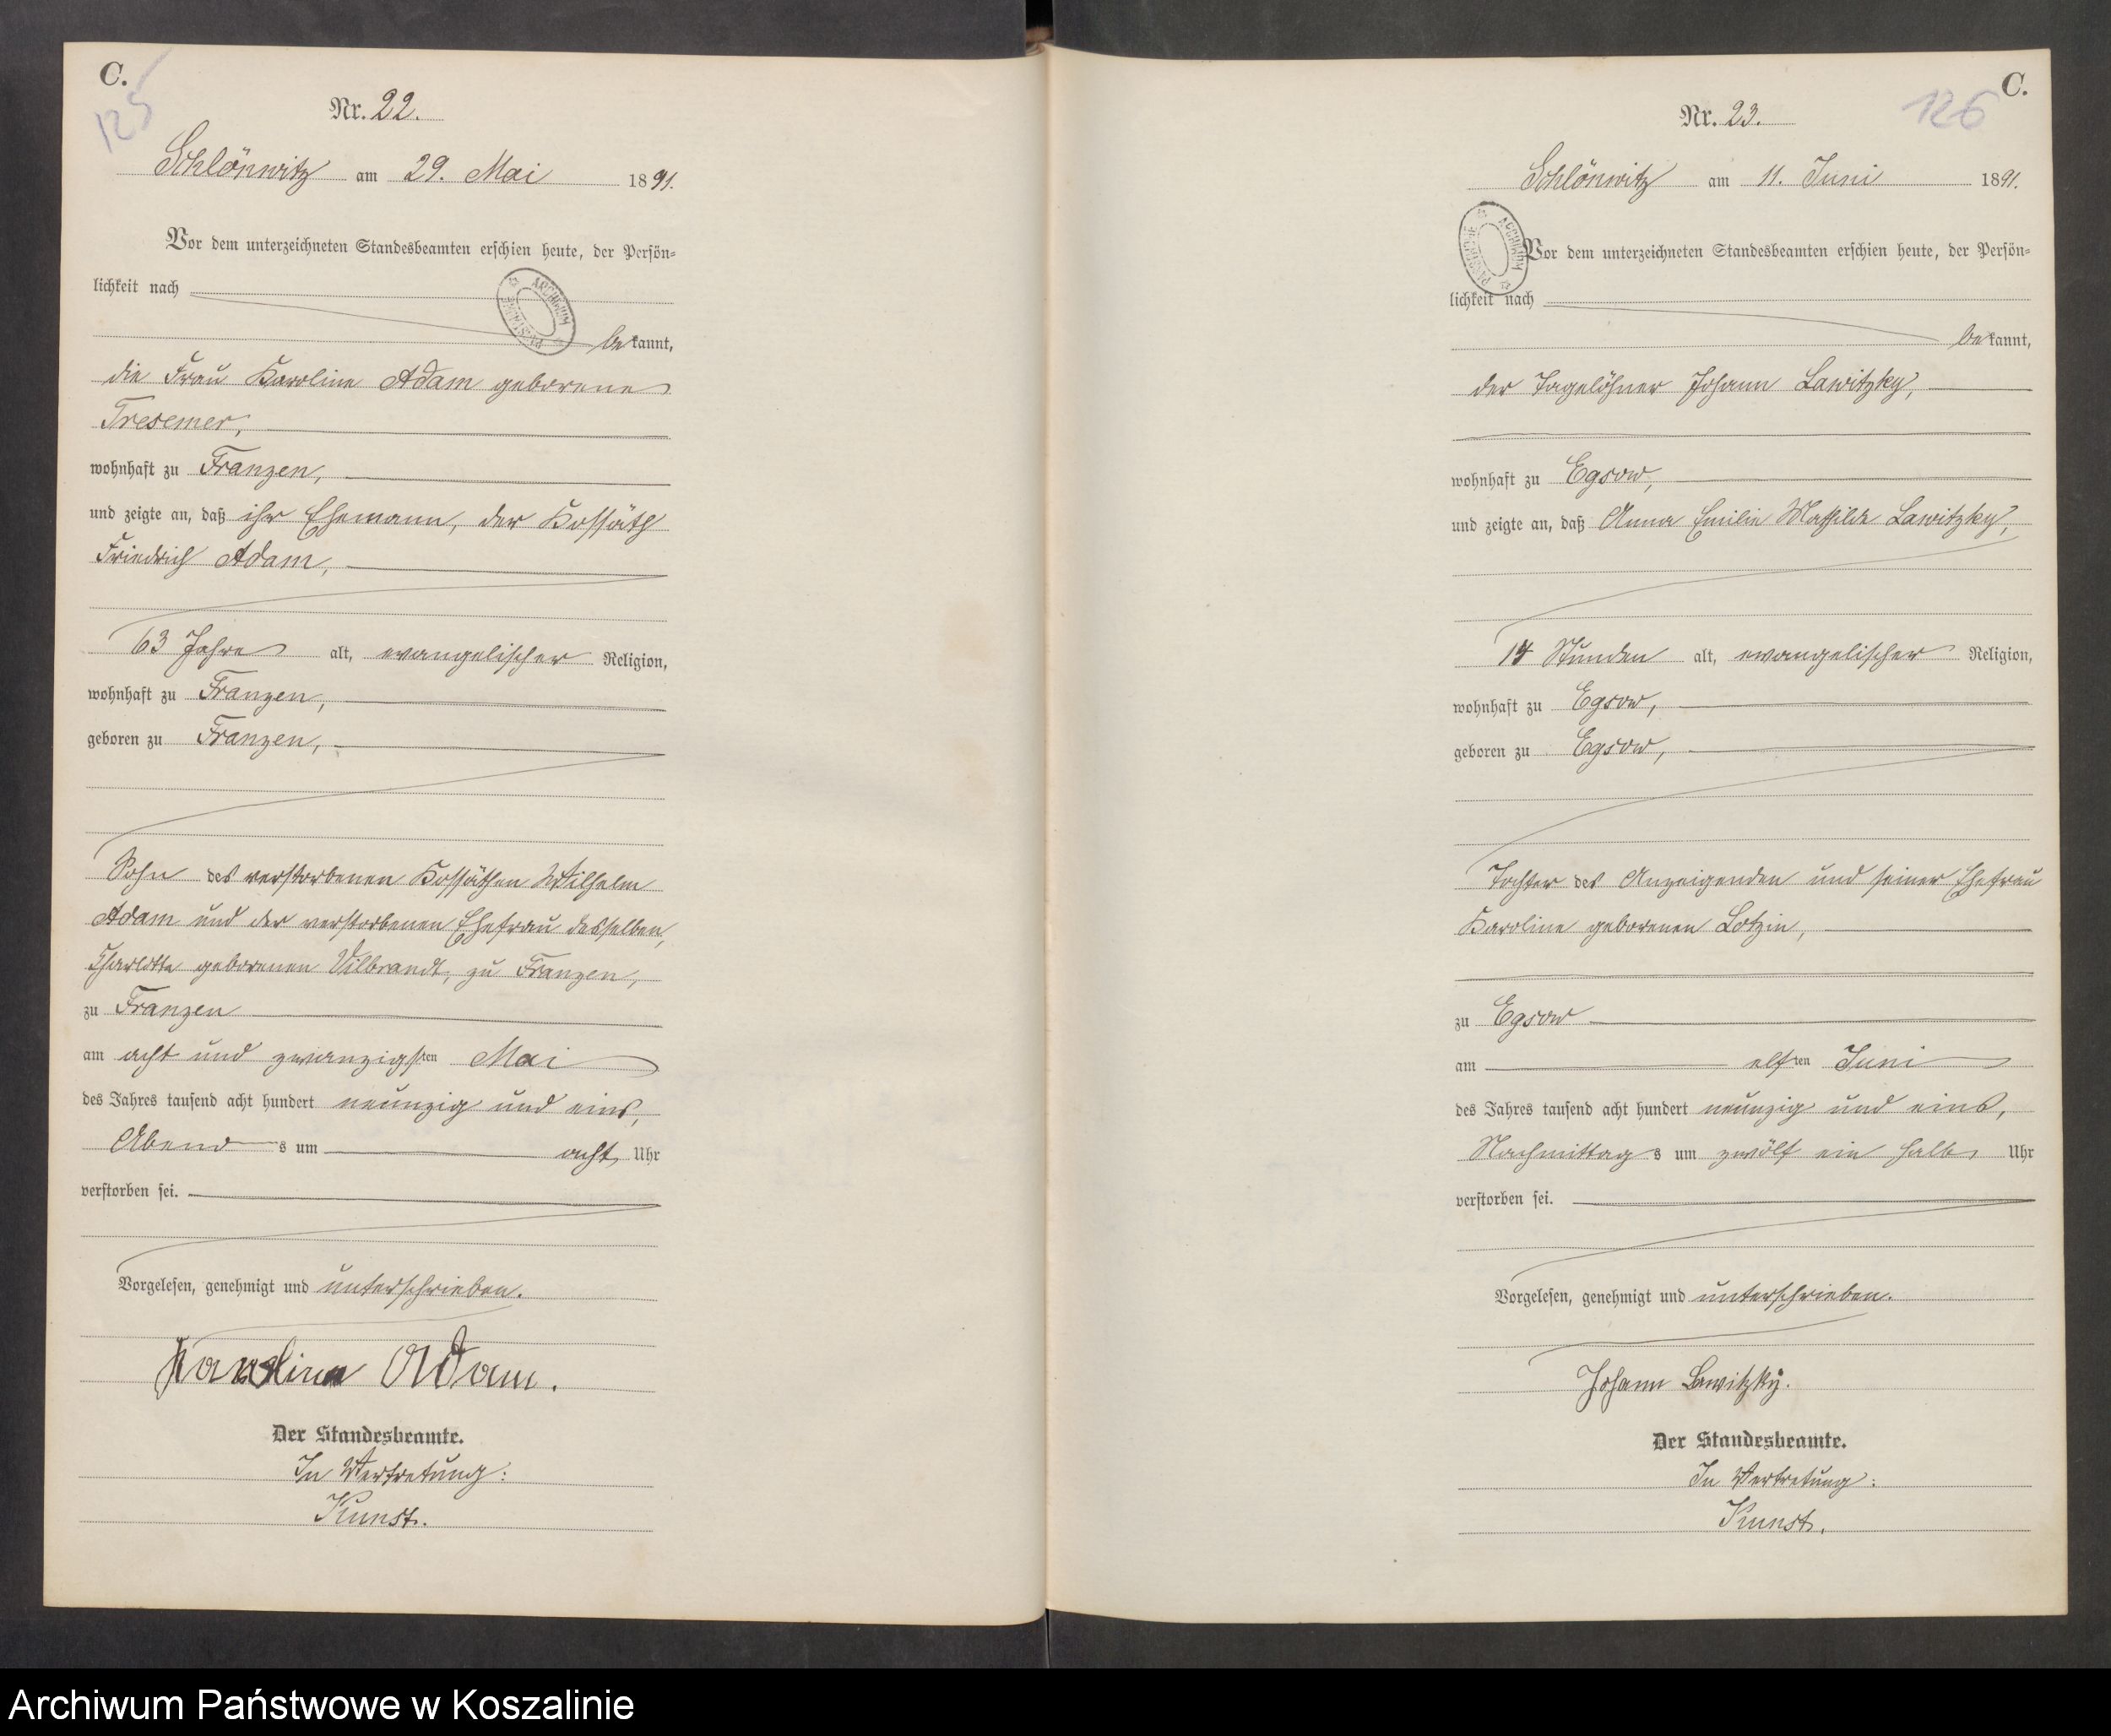 C.
125
Nr. 22.
Schlönwitz am 29. Mai 1891.
Vor dem unterzeichneten Standesbeamten erschien heute, der Persön-
lichkeit nach
bekannt,
die Frau Karoline Adam geborene
Tresemer,
wohnhaft zu Franzen,
und zeigte an, daß ihr Ehemann, der Kossäth
Friedrich Adam,
63 Jahre alt, evangelischer Religion,
wohnhaft zu Franzen,
geboren zu Franzen,
Sohn des verstorbenen Kossäthen Wilhelm
Adam und der verstorbenen Ehefrau desselben,
Charlotte geborenen Vilbrandt, zu Franzen,
zu Franzen
am acht und zwanzigsten Mai
des Jahres tausend acht hundert neunzig und eins,
Abends um acht Uhr
verstorben sei.
Vorgelesen, genehmigt und unterschrieben.
Karoline Adam.
Der Standesbeamte.
In Vertretung:
Kunst.
C.
126
Nr. 23.
Schlönwitz am 11. Juni 1891.
ARCHIWUM PAŃSTWOWE
Vor dem unterzeichneten Standesbeamten erschien heute, der Persön-
lichkeit nach
bekannt,
der Tagelöhner Johann Lawitzky,
wohnhaft zu Egsow,
und zeigte an, daß Anna Emilie Mathilde Lawitzky,
14 Stunden alt, evangelischer Religion,
wohnhaft zu Egsow,
geboren zu Egsow,
Tochter des Anzeigenden und seiner Ehefrau
Karoline geborenen Lotzin,
zu Egsow
am elften Juni
des Jahres tausend acht hundert neunzig und eins,
Nachmittags um zwölf ein halb Uhr
verstorben sei.
Vorgelesen, genehmigt und unterschrieben.
Johann Lawitzky.
Der Standesbeamte.
In Vertretung:
Kunst.
Archiwum Państwowe w Koszalinie